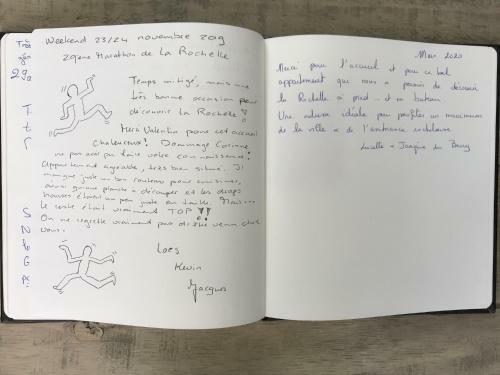 Weekend 23/24 novembre 2019
29ème Marathon de La Rochelle
Temps mitigé, mais une
très bonne occasion pour
découvrir La Rochelle !
Merci Valentin pour cet accueil
chaleureux ! Dommage Corinne,
ne pas avoir pu faire votre connaissance !
Appartement agréable, très bien situé. Il
manque juste un bon couteau pour cuisiner,
aussi qu'une planche à découper et les draps
housses étaient un peu juste en taille. Mais...
le reste était vraiment TOP !!
On ne regrette vraiment pas d'être venu chez
vous.
Loes
Kevin
Jacques
Mars 2020
Merci pour l'accueil et pour ce bel
appartement qui nous a permis de découvrir
la Rochelle à pied... et en bateau.
Une adresse idéale pour profiter au maximum
de la ville & de l'ambiance rochelaise.
Lucette &